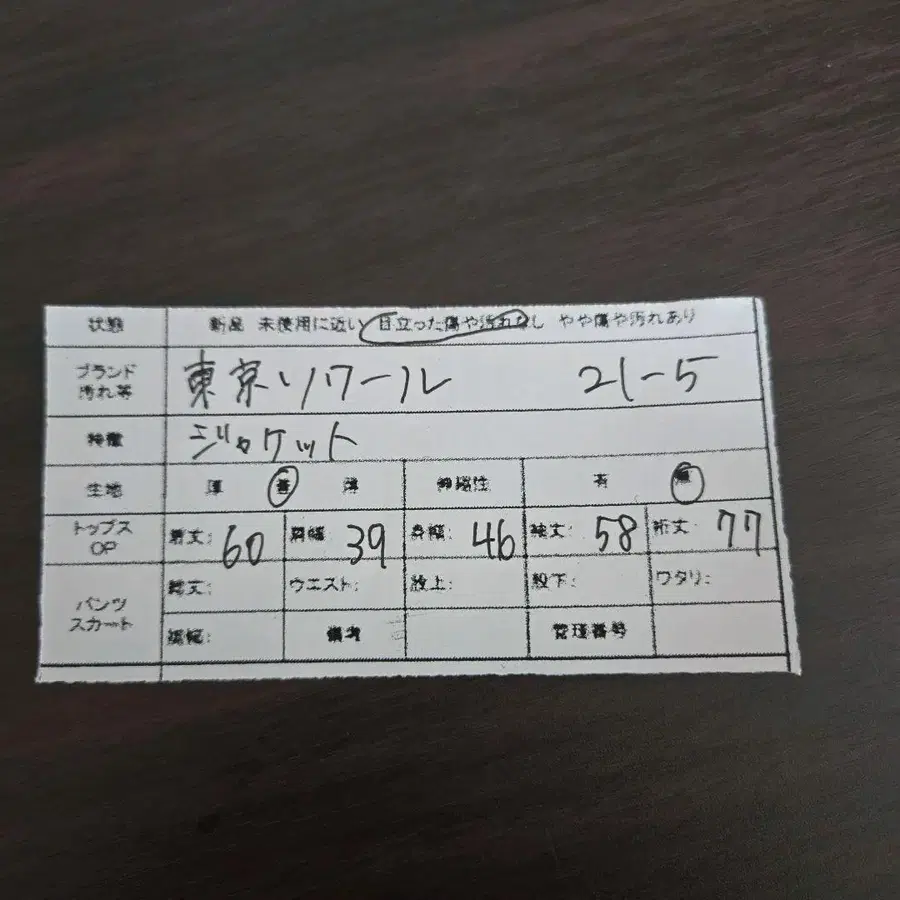 状態 新品 未使用に近い 目立った傷や汚れなし やや傷や汚れあり
ブランド 東京ソワール 21-5
汚れ等
特徴 ジャケット
生地 厚 普 薄 伸縮性 有 無
トップス 着丈: 60 肩幅: 39 身幅: 46 袖丈: 58 裄丈: 77
OP
パンツ 総丈: ウエスト: 股上: 股下: ワタリ:
スカート 裾幅: 備考 管理番号